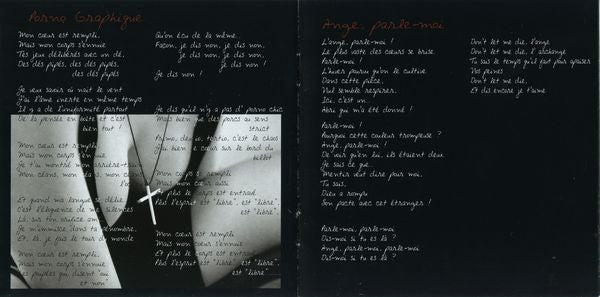 Porno Graphique
Mon cœur est rempli,
Mais mon corps s'ennuie
Tes jeux délibérés avec un dé,
Des dés pipés, des dés pipés,
des dés pipés
Je veux savoir où naît le vent
J'ai l'âme inerte en même temps
Il y a de l'uniformité partout
De la pensée en boîte et c'est
bien tout !
Mon cœur est rempli
Mais mon corps s'ennuie
Je t'ai montré mon arrière-train
Mon clone, mon
Et quand ma langue se délie
c'est l'éloquence de mes silences
Là, sur ton orifice
Je m'immisce dans ta pénombre,
Et, là, je fais le tour du monde
Mon cœur est rempli
Mais mon corps s'ennuie,
Les pupilles qui disent "oui
et non"
Qu'en écu de la même
Façon, je dis non, je dis non,
je dis non, je dis non,
je dis non !
Je dis non !
Je dis qu'il n'y a pas d' porno chic
Mais bien que des porcs au sens
strict
Primo, deuzio, tertio, c'est le chaos
J'ai bien le cœur sur le bord du
billot
Mon corps s' rempli
Mais mon cœur aussi
Et plus le corps est entravé
Plus l'esprit est "libre", est "libre",
est "libre",
Mon cœur est rempli
Mais mon cœur s'ennuie
Et plus le corps est entravé
Plus l'esprit est "libre", est "libre",
est "libre"
Ange, parle-moi
L'ange, parle-moi !
Le plus vaste des cœurs se brise.
Parle-moi !
L'hiver pourvu qu'on le cultive
Dans cette pièce,
Nul semble respirer,
Ici, c'est un...
Abri qui m'a été donné !
Parle-moi !
Pourquoi cette couleur trompeuse ?
Ange, parle-moi !
De voir qu'en lui, ils étaient deux
Je sais ce que...
Mentir veut dire pour moi,
Tu sais,
Dieu a rompu
Son pacte avec cet étranger !
Parle-moi, parle-moi
Dis-moi si tu es là ?
Ange, parle-moi, parle-moi
Dis-moi si tu es là ?
Don't let me die, l'ange
Don't let me die, l'archange
Tu sais le temps qu'il faut pour apaiser
Nos peines
Don't let me die,
Et dis encore je t'aime